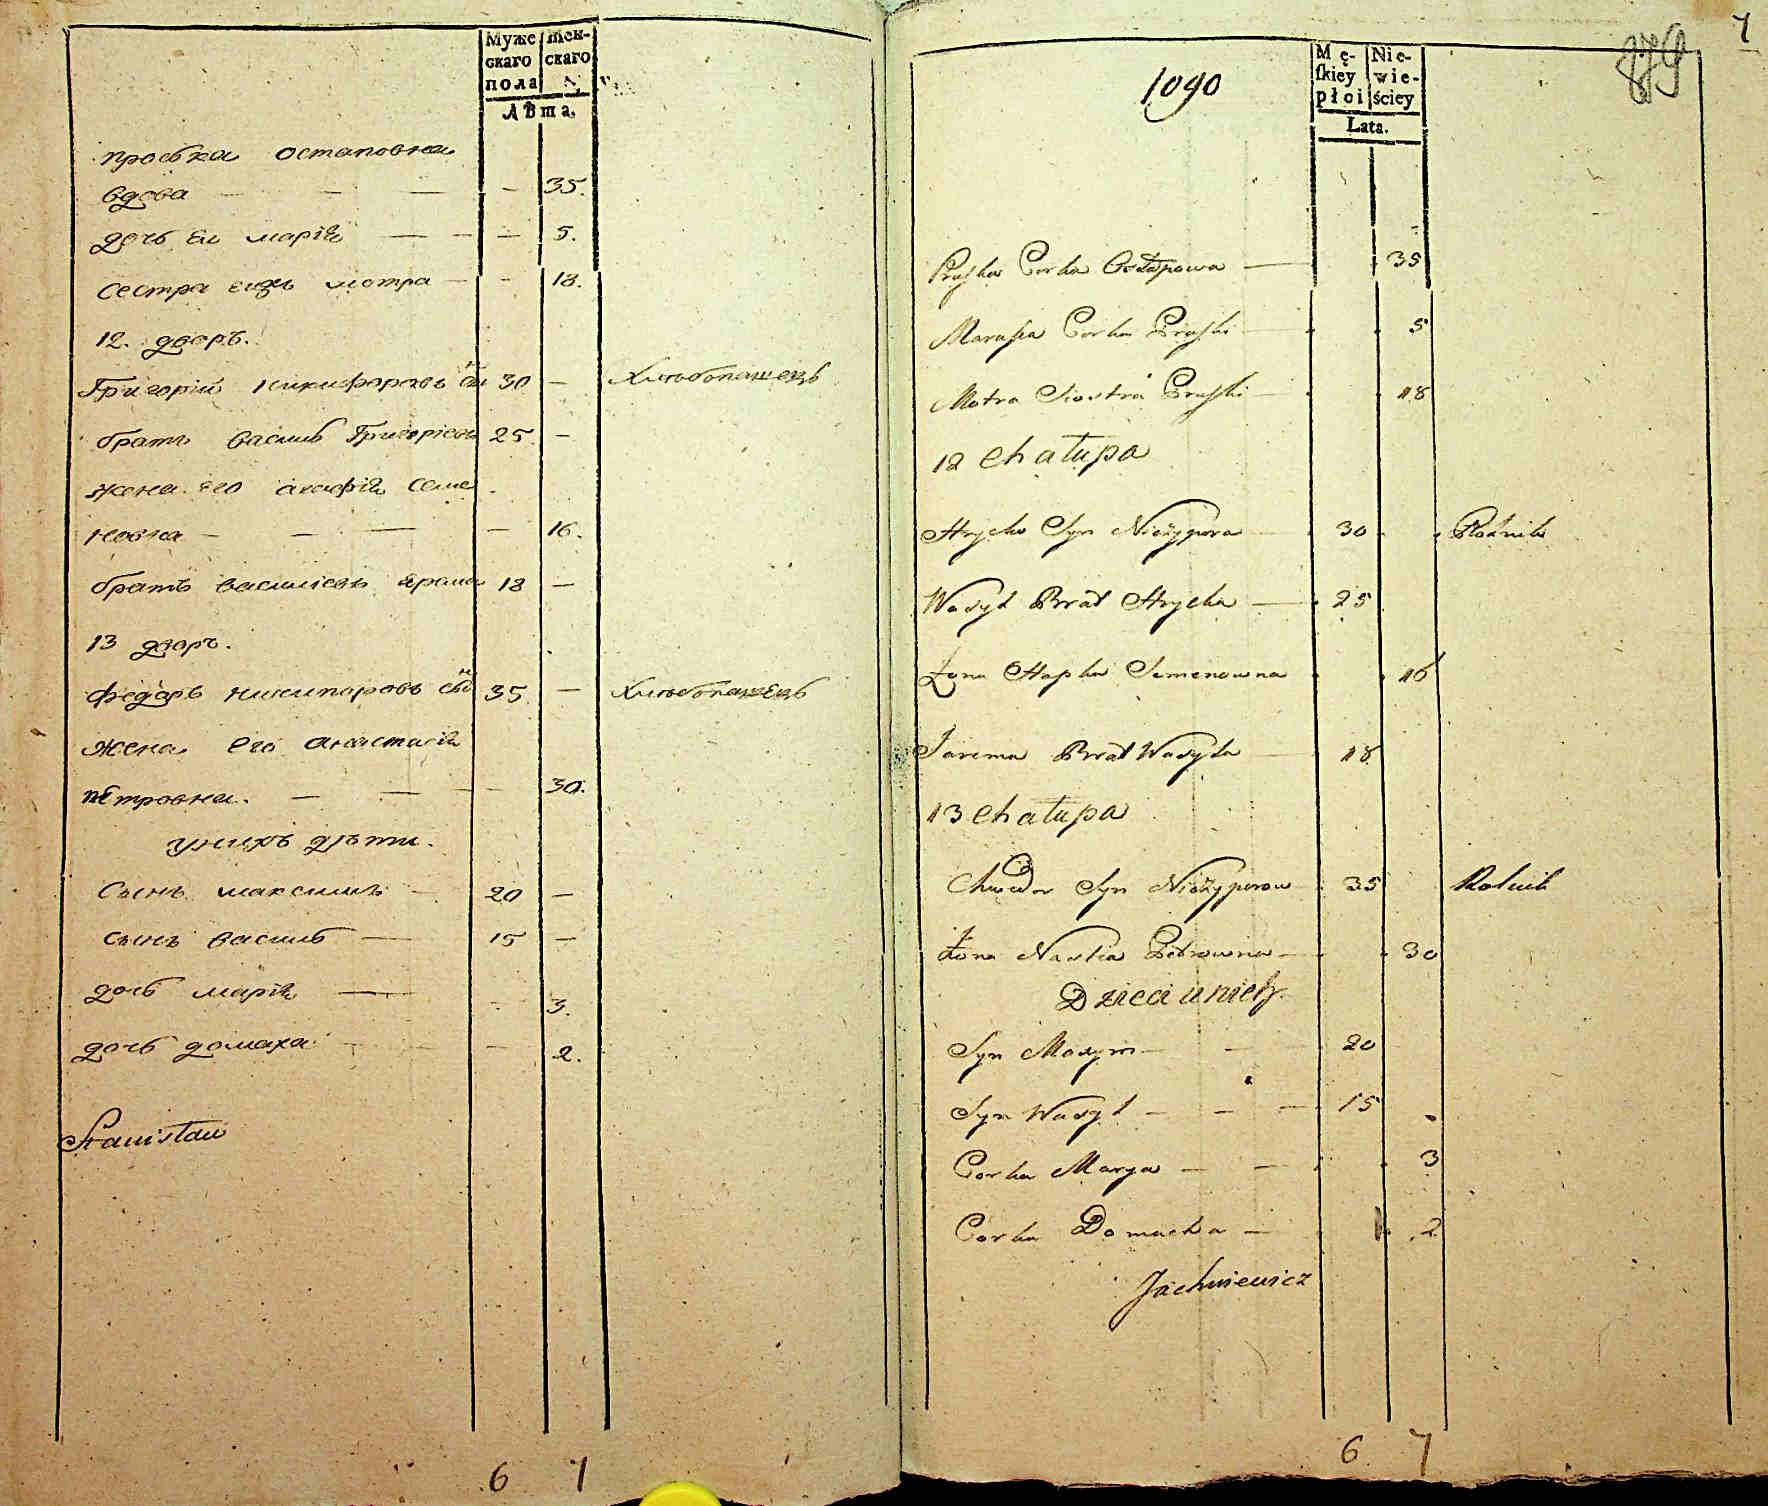 Муже
скаго
пола
жен-
скаго
Лѣта.
проська остаповна
вдова — — — — 35.
дочь ея марія — — — 5.
сестра мотра — — 18.
12. дворъ.
Григорій никифоровъ 30 — Хлѣбопашецъ
братъ василь Григоріевъ 25 —
жена его агафія семе
новна — — — — 16.
братъ василіевъ ярема 18 —
13 дворъ.
федоръ никипоровъ 35 — Хлѣбопашецъ
жена его анастасія
петровна. — — — 30.
унихъ дѣти.
Сынъ максимъ — 20 —
сынъ василь — 15 —
дочь марія — 3.
дочь домаха — 2.
Stanisław
6 7
7
1090
Mę-
skiey
płci
Nie-
wie-
ściey
Lata.
Praska Corka Ostapowa — 35
Marusia Corka Praski — 5
Motra Siostra Praski — 18
12 Chałupa
Hrycko Syn Niczypora — 30 Rolnik
Wasyl Brat Hrycka — 25
Żona Hapka Semenowna 16
Jarema Brat Wasyla — 18
13 Chałupa
Chwedor Syn Niczyporow 35 Rolnik
Żona Nastia Petrowna — 30
Dzieci u nich.
Syn Maxym — — 20
Syn Wasyl — — — 15
Corka Marya — — 3
Corka Domacha — 2
Jachniewicz
6 7